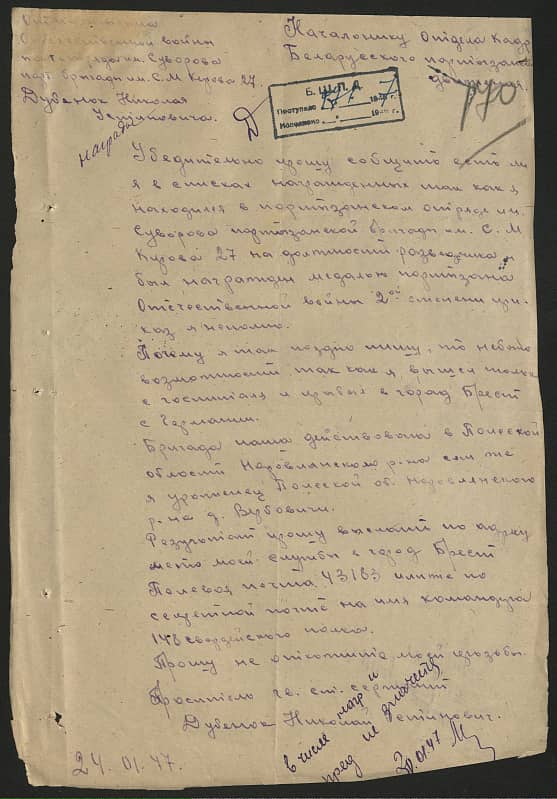 Начальнику Отдела Кадр
Отечественной войны
партотряда им. Суворова
парт бригады им. С. М Кирова 27.
Дубенок Николая
Устиновича.
Беларусского партизан
движения.
Б. Ш. П. Д.
Поступило
194 г.
Исполнено
194 г.
награда
190
Убедительно прошу сообщить есть ли
я в списках награжденных так как я
находился в партизанском отряде им.
Суворова партизанской бригады им. С. М
Кирова 27 на должности разведчика и
был награжден медалью партизана
Отечественной войны 2ой степени при-
каз я непомню.
Почему я так поздно пишу, то небыло
возможности так как я вышел только
с госпиталя и прибыл в город Брест
с Германии.
Бригада наша действовала в Полеской
области Наровлянского р-на сам же
я уроженец Полеской об. Наровлянского
р-на д. Вербовичи.
Результат прошу выслать по адресу
место моей службы в город Брест
Полевая почта 43183 или же по
секретной почте на имя командира
146 гвардейского полка.
Прошу не отказать моей прозьбы.
К просит гв. ст. сержант
Дубенок Николай Устинович.
24.01.47.
в числе нагр и
пред не значится
30.01.47